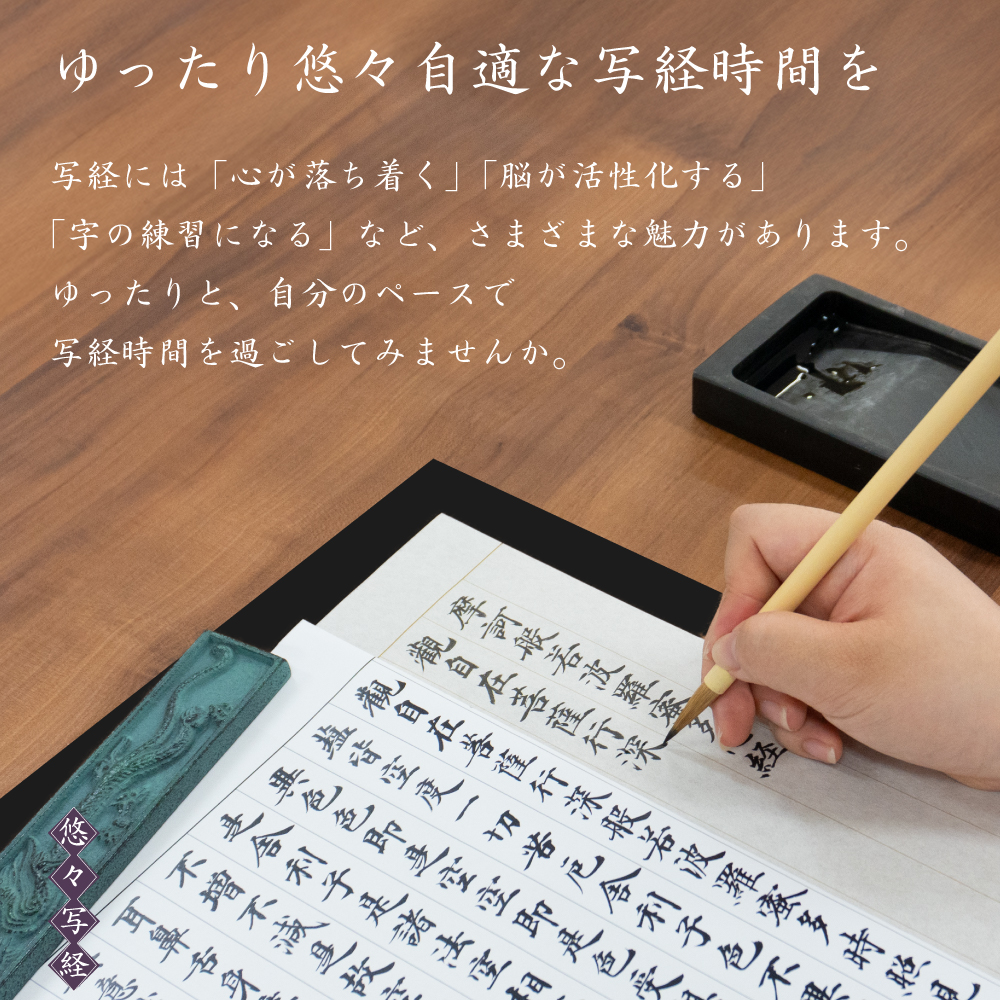 ゆったり悠々自適な写経時間を
写経には「心が落ち着く」「脳が活性化する」
「字の練習になる」など、さまざまな魅力があります。
ゆったりと、自分のペースで
写経時間を過ごしてみませんか。
摩訶般若波羅蜜多
経
觀自在菩薩行深
觀自在菩薩行深般若波羅蜜多時照見
蘊皆空度一切苦厄舍利子色不
異色色即是空空即是色受
是舍利子是諸法空相
不增不減是故
耳鼻舌身
意
悠々写経